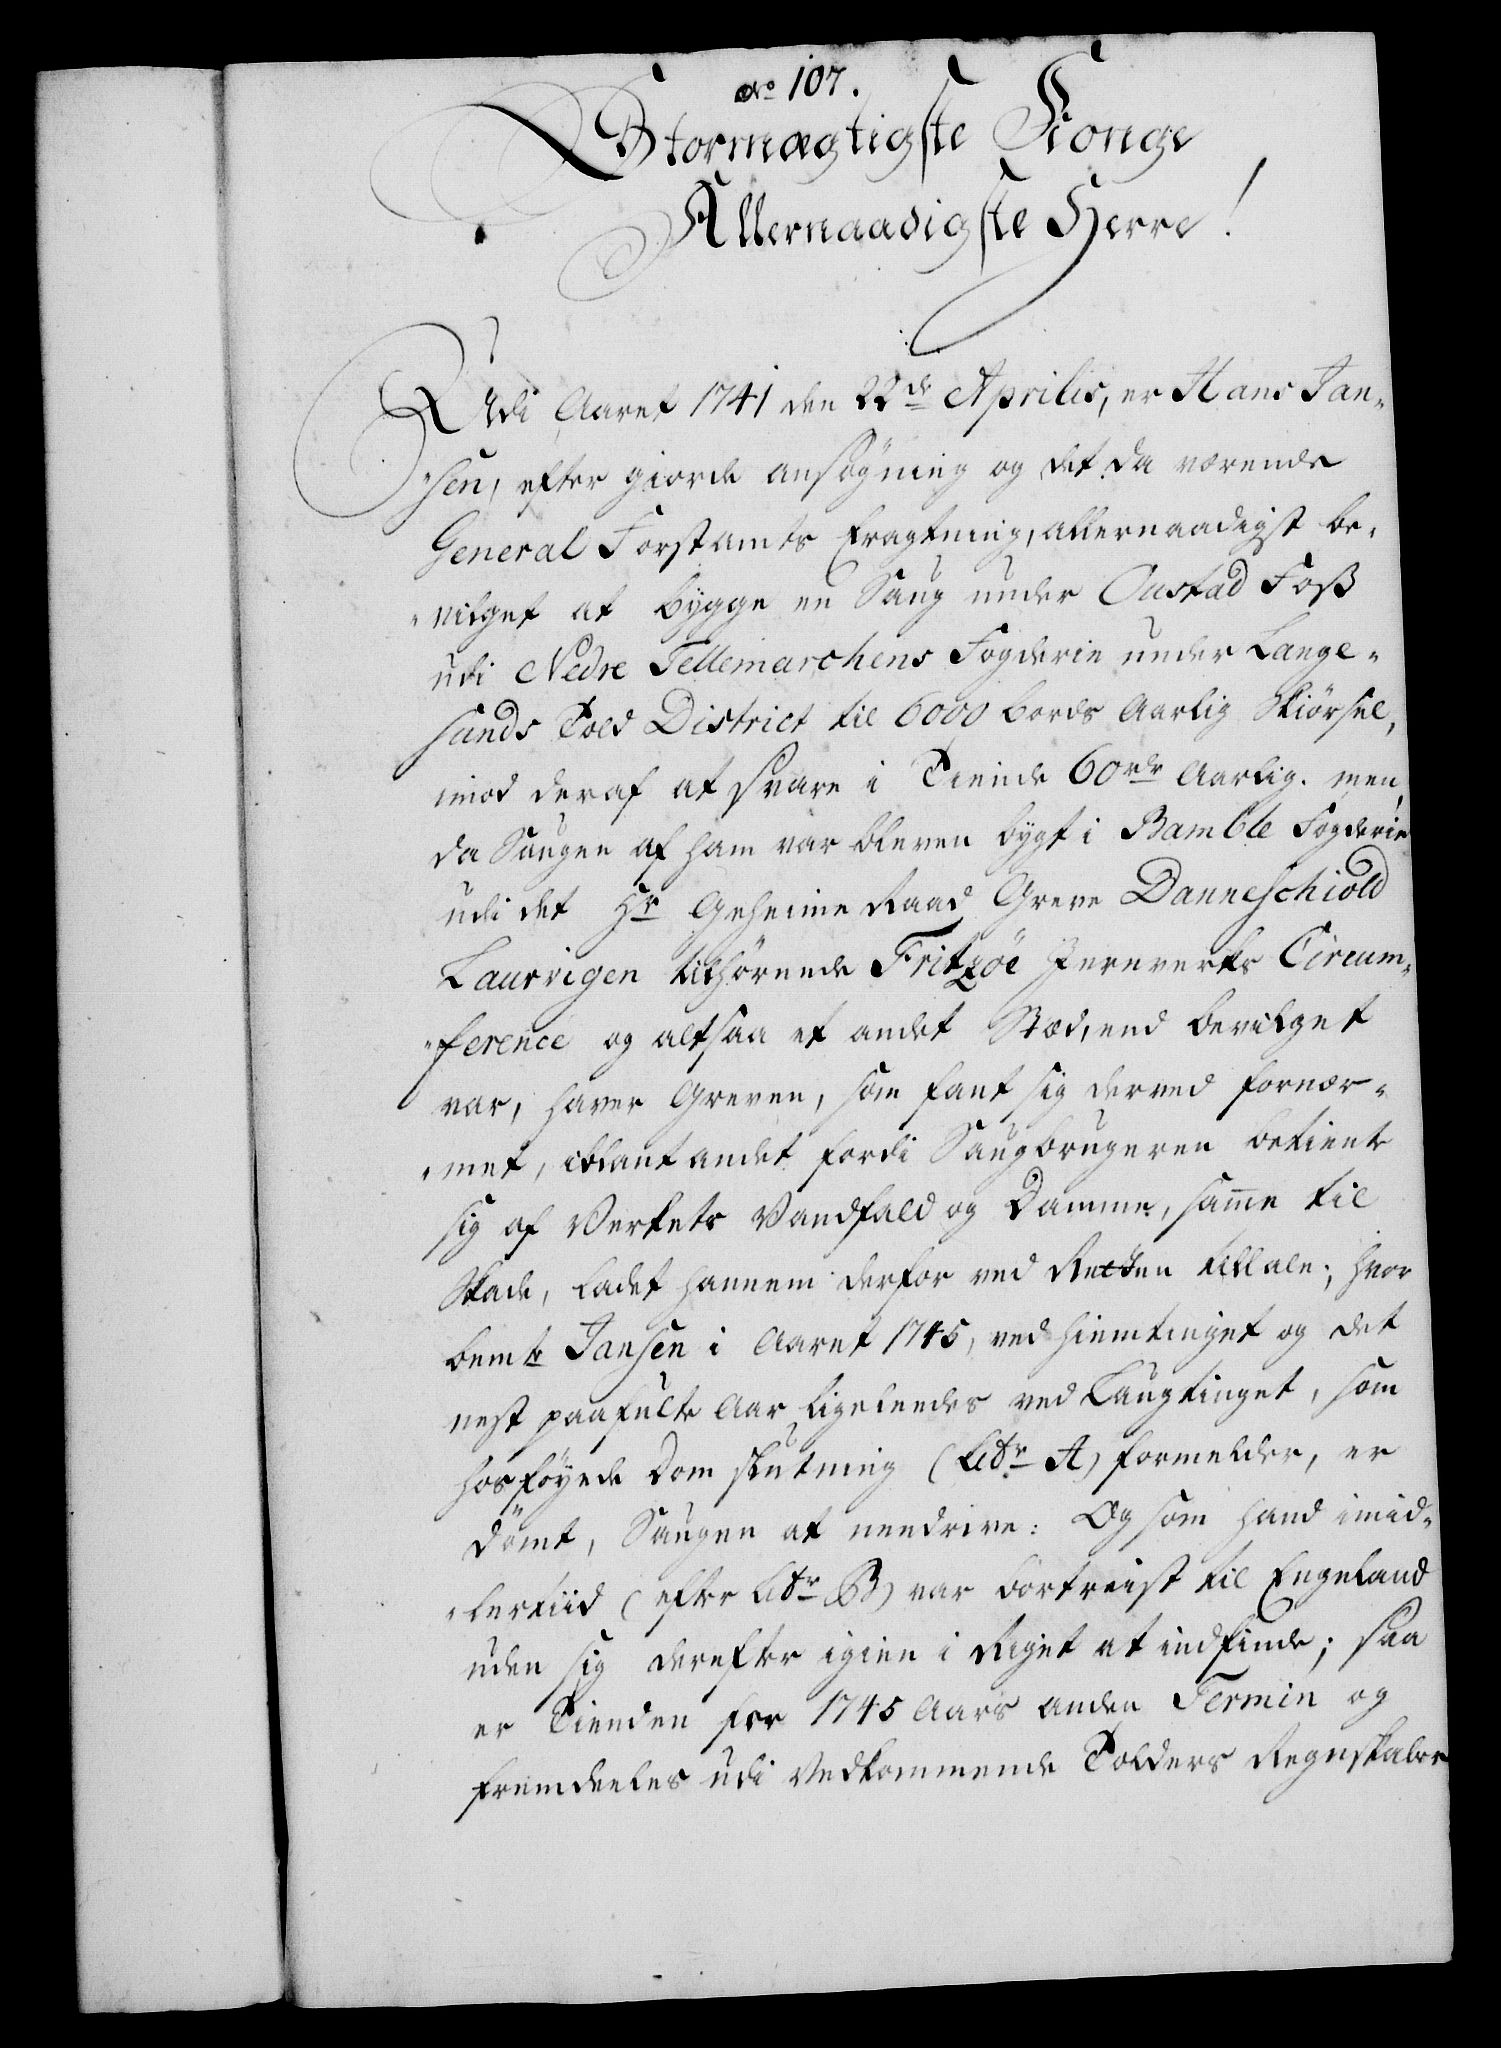 No 107.
Stormægtigste Konge
Allernaadigste Herre!
Udi Aaret 1741 den 22de Aprilis, er Hans Jan-
sen, efter giorde ansøgning og det da værende
General Forstamts Eragtning, allernaadigst be-
vilget at bygge en Saug under Oustad Foss
udi Nedre Tellemarchens Fogderie under Lange-
sunds Told District til 6000 bords Aarlig Skiørsel,
imod deraf at svare i Tiende 60 rdr Aarlig. men,
da Saugen af ham var bleven bygt i Bamble Fogderie
udi det Hr Geheime Raad Greve Danneschiold
Laurvigen tilhørende Fritzöe Jernverks Circum-
ference og altsaa et andet Stæd, end bevilget
var, haver Greven, som fant sig derved fornær-
met, iblant andet fordi Saugbrugeren betiente
sig af Verkets Vandfald og Damme, samme til
Skade, ladet hannem derfor ved Retten tiltale; hvor
bemte Jansen i Aaret 1745, ved Hiemtinget og det
nest paafulte Aar ligeleedes ved Laugtinget, som
hosføyede Dom slutning (Litr A) formelder, er
dömt, Saugen at neendrive: Og som hand imid-
lertiid (efter Litr B) var bortreist til Engeland
uden sig derefter igien i Riget at indfinde; saa
er Tienden for 1745 Aars anden Termin og
fremdeeles udi Vedkommende Tolders Regnskaber